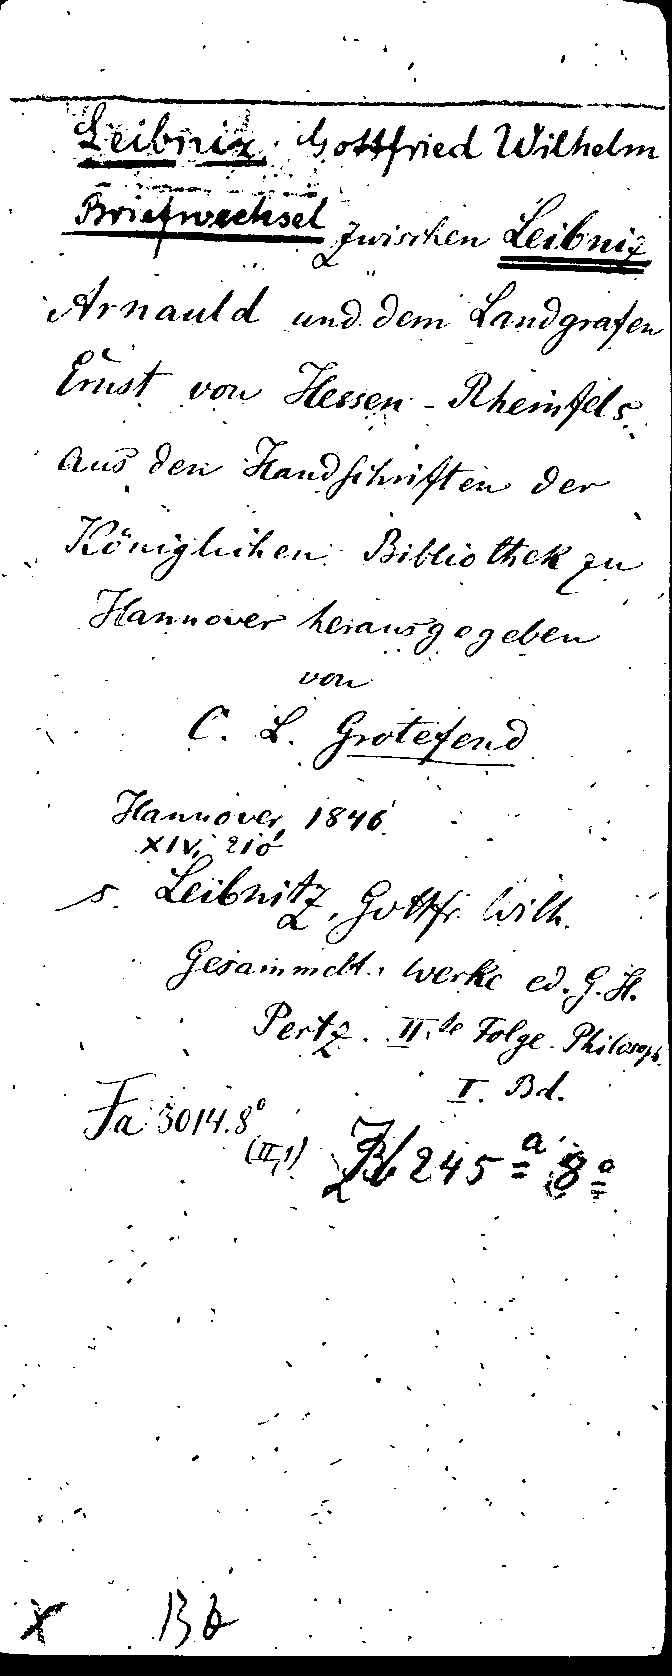 Leibniz, Gottfried Wilhelm
Briefwechsel zwischen Leibniz
Arnauld und dem Landgrafen
Ernst von Hessen-Rheinfels
aus den Handschriften der
Königlichen Bibliothek zu
Hannover herausgegeben
von
C. L. Grotefend
Hannover, 1846.
XIV, 210
s. Leibnitz, Gottfr. Wilh.
Gesammelt. Werke ed. G. H.
Pertz. II.te Folge. Philosoph.
I. Bd.
Fa 3014.8°
(II,1)
245 a 8°
X